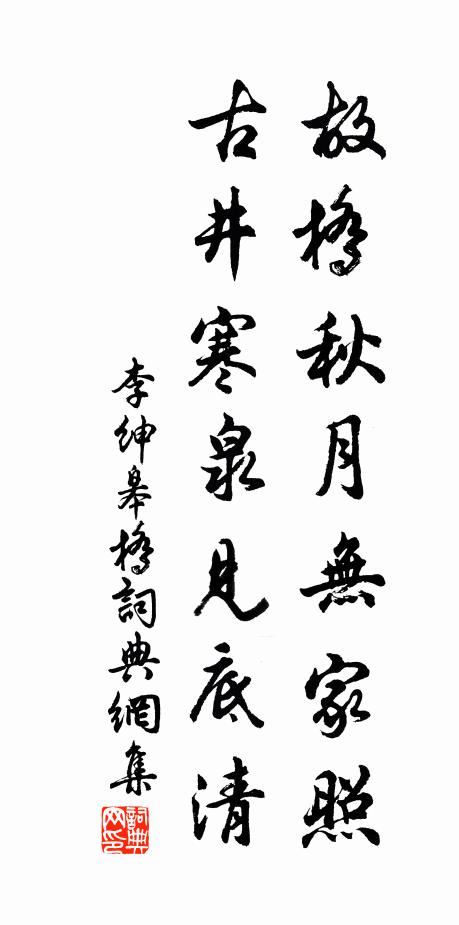 故橋秋月無家照
古井寒泉見底清
李紳皋橋詞典網集
詞典网印